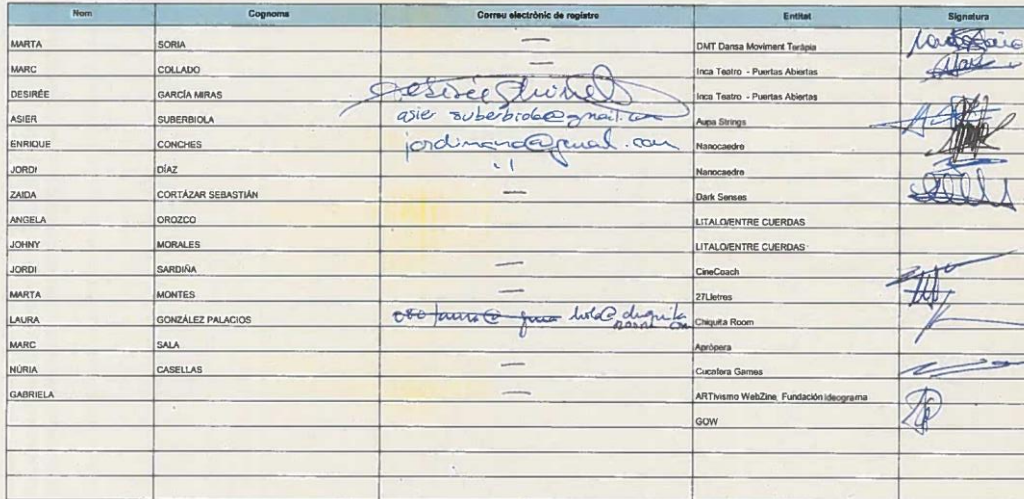 Nom Cognoms Correu electrònic de registre Entitat Signatura
MARTA SORIA — DMT Dansa Moviment Teràpia
MARC COLLADO — Inca Teatro - Puertas Abiertas
DESIRÉE GARCÍA MIRAS Inca Teatro - Puertas Abiertas
ASIER SUBERBIOLA asier suberbiola@gmail.com Aupa Strings
ENRIQUE CONCHES Nanocaedre
JORDI DÍAZ Nanocaedre
ZAIDA CORTÁZAR SEBASTIÁN — Dark Senses
ANGELA OROZCO LITALO/ENTRE CUERDAS
JOHNY MORALES LITALO/ENTRE CUERDAS
JORDI SARDIÑA — CineCoach
MARTA MONTES — 27Lletres
LAURA GONZÁLEZ PALACIOS Chiquita Room
MARC SALA Apròpera
NÚRIA CASELLAS — Cucafera Games
GABRIELA — ARTivismo WebZine, Fundación ideograma
GOW